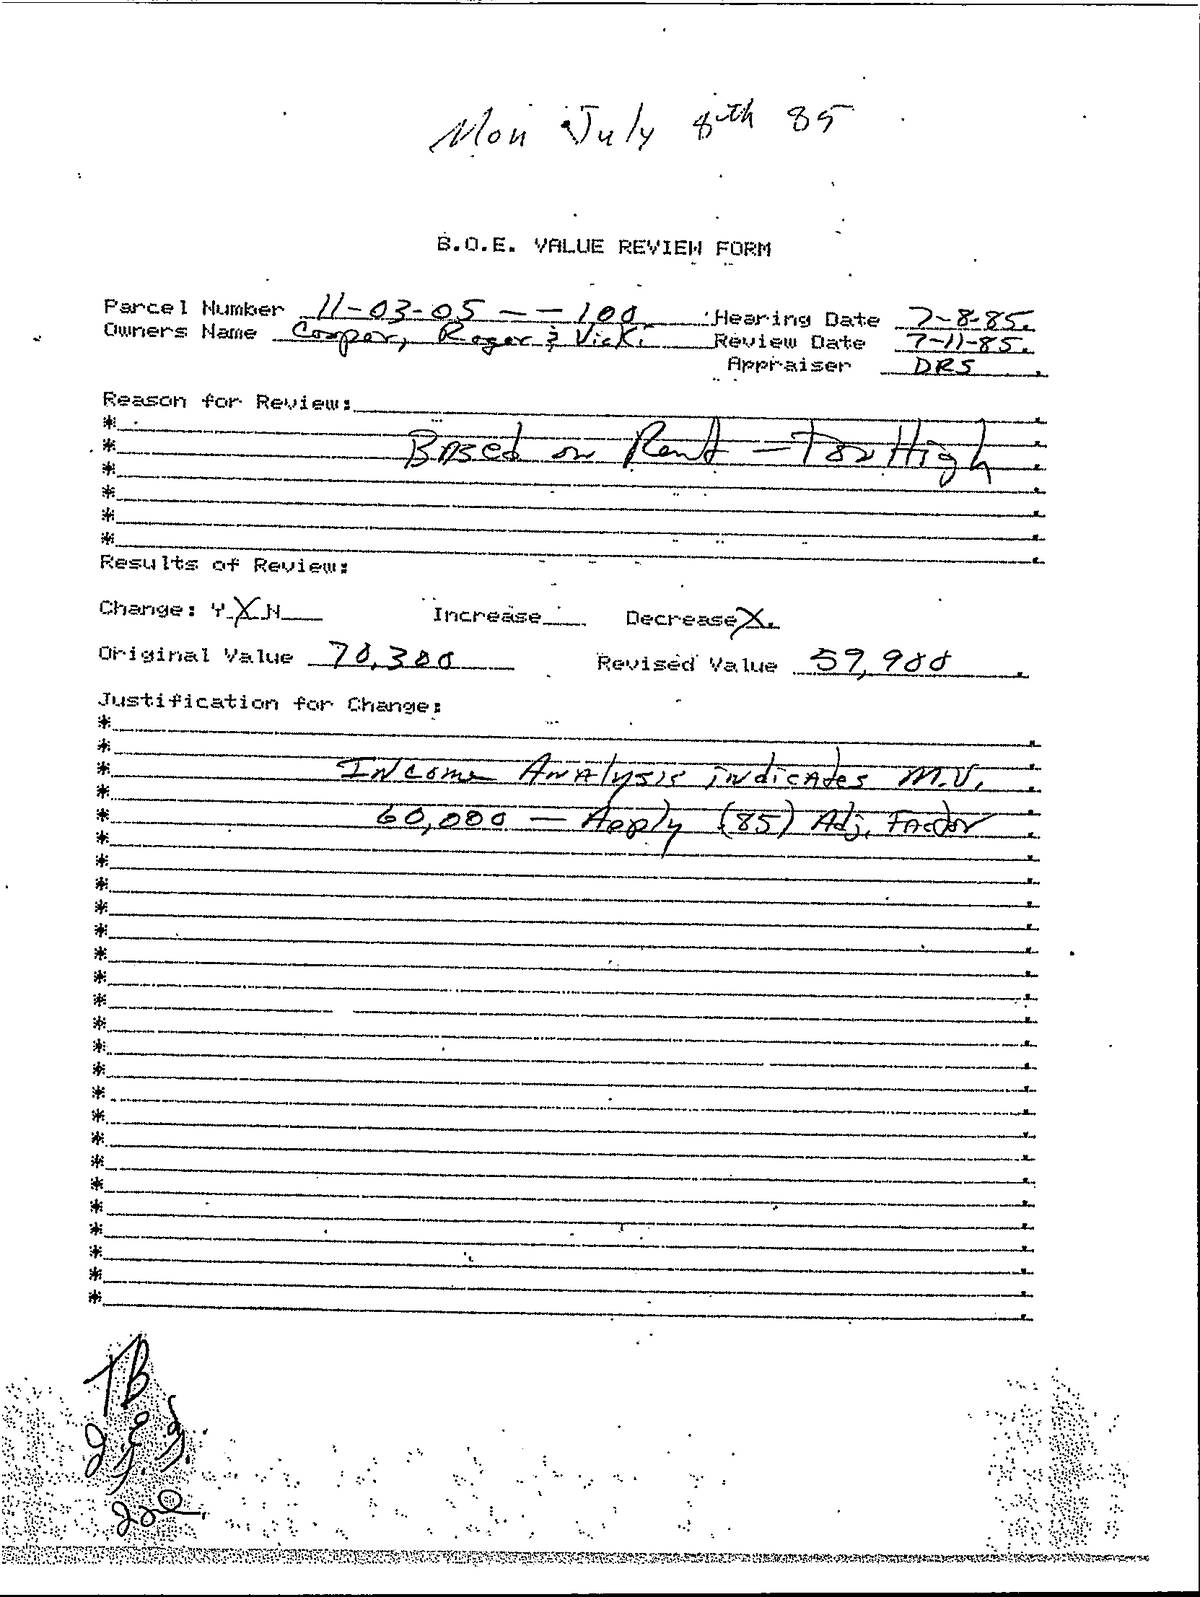 Mon July 8th 85
B.O.E. VALUE REVIEW FORM
Parcel Number 11-03-05 - - 100 Hearing Date 7-8-85.
Owners Name Cooper, Roger & Vicki Review Date 7-11-85.
Appraiser DRS
Reason for Review:
*
*
Based on Rent - Too High
*
*
*
*
Results of Review:
Change: Y X N___ Increase___ Decrease X
Original Value 70,300 Revised Value 59,900
Justification for Change:
*
*
* Income Analysis indicates M.V.
*
* 60,000 - Apply (85) Adj. Factor
*
*
*
*
*
*
*
*
*
*
*
*
*
*
*
*
*
*
*
*
*
TB